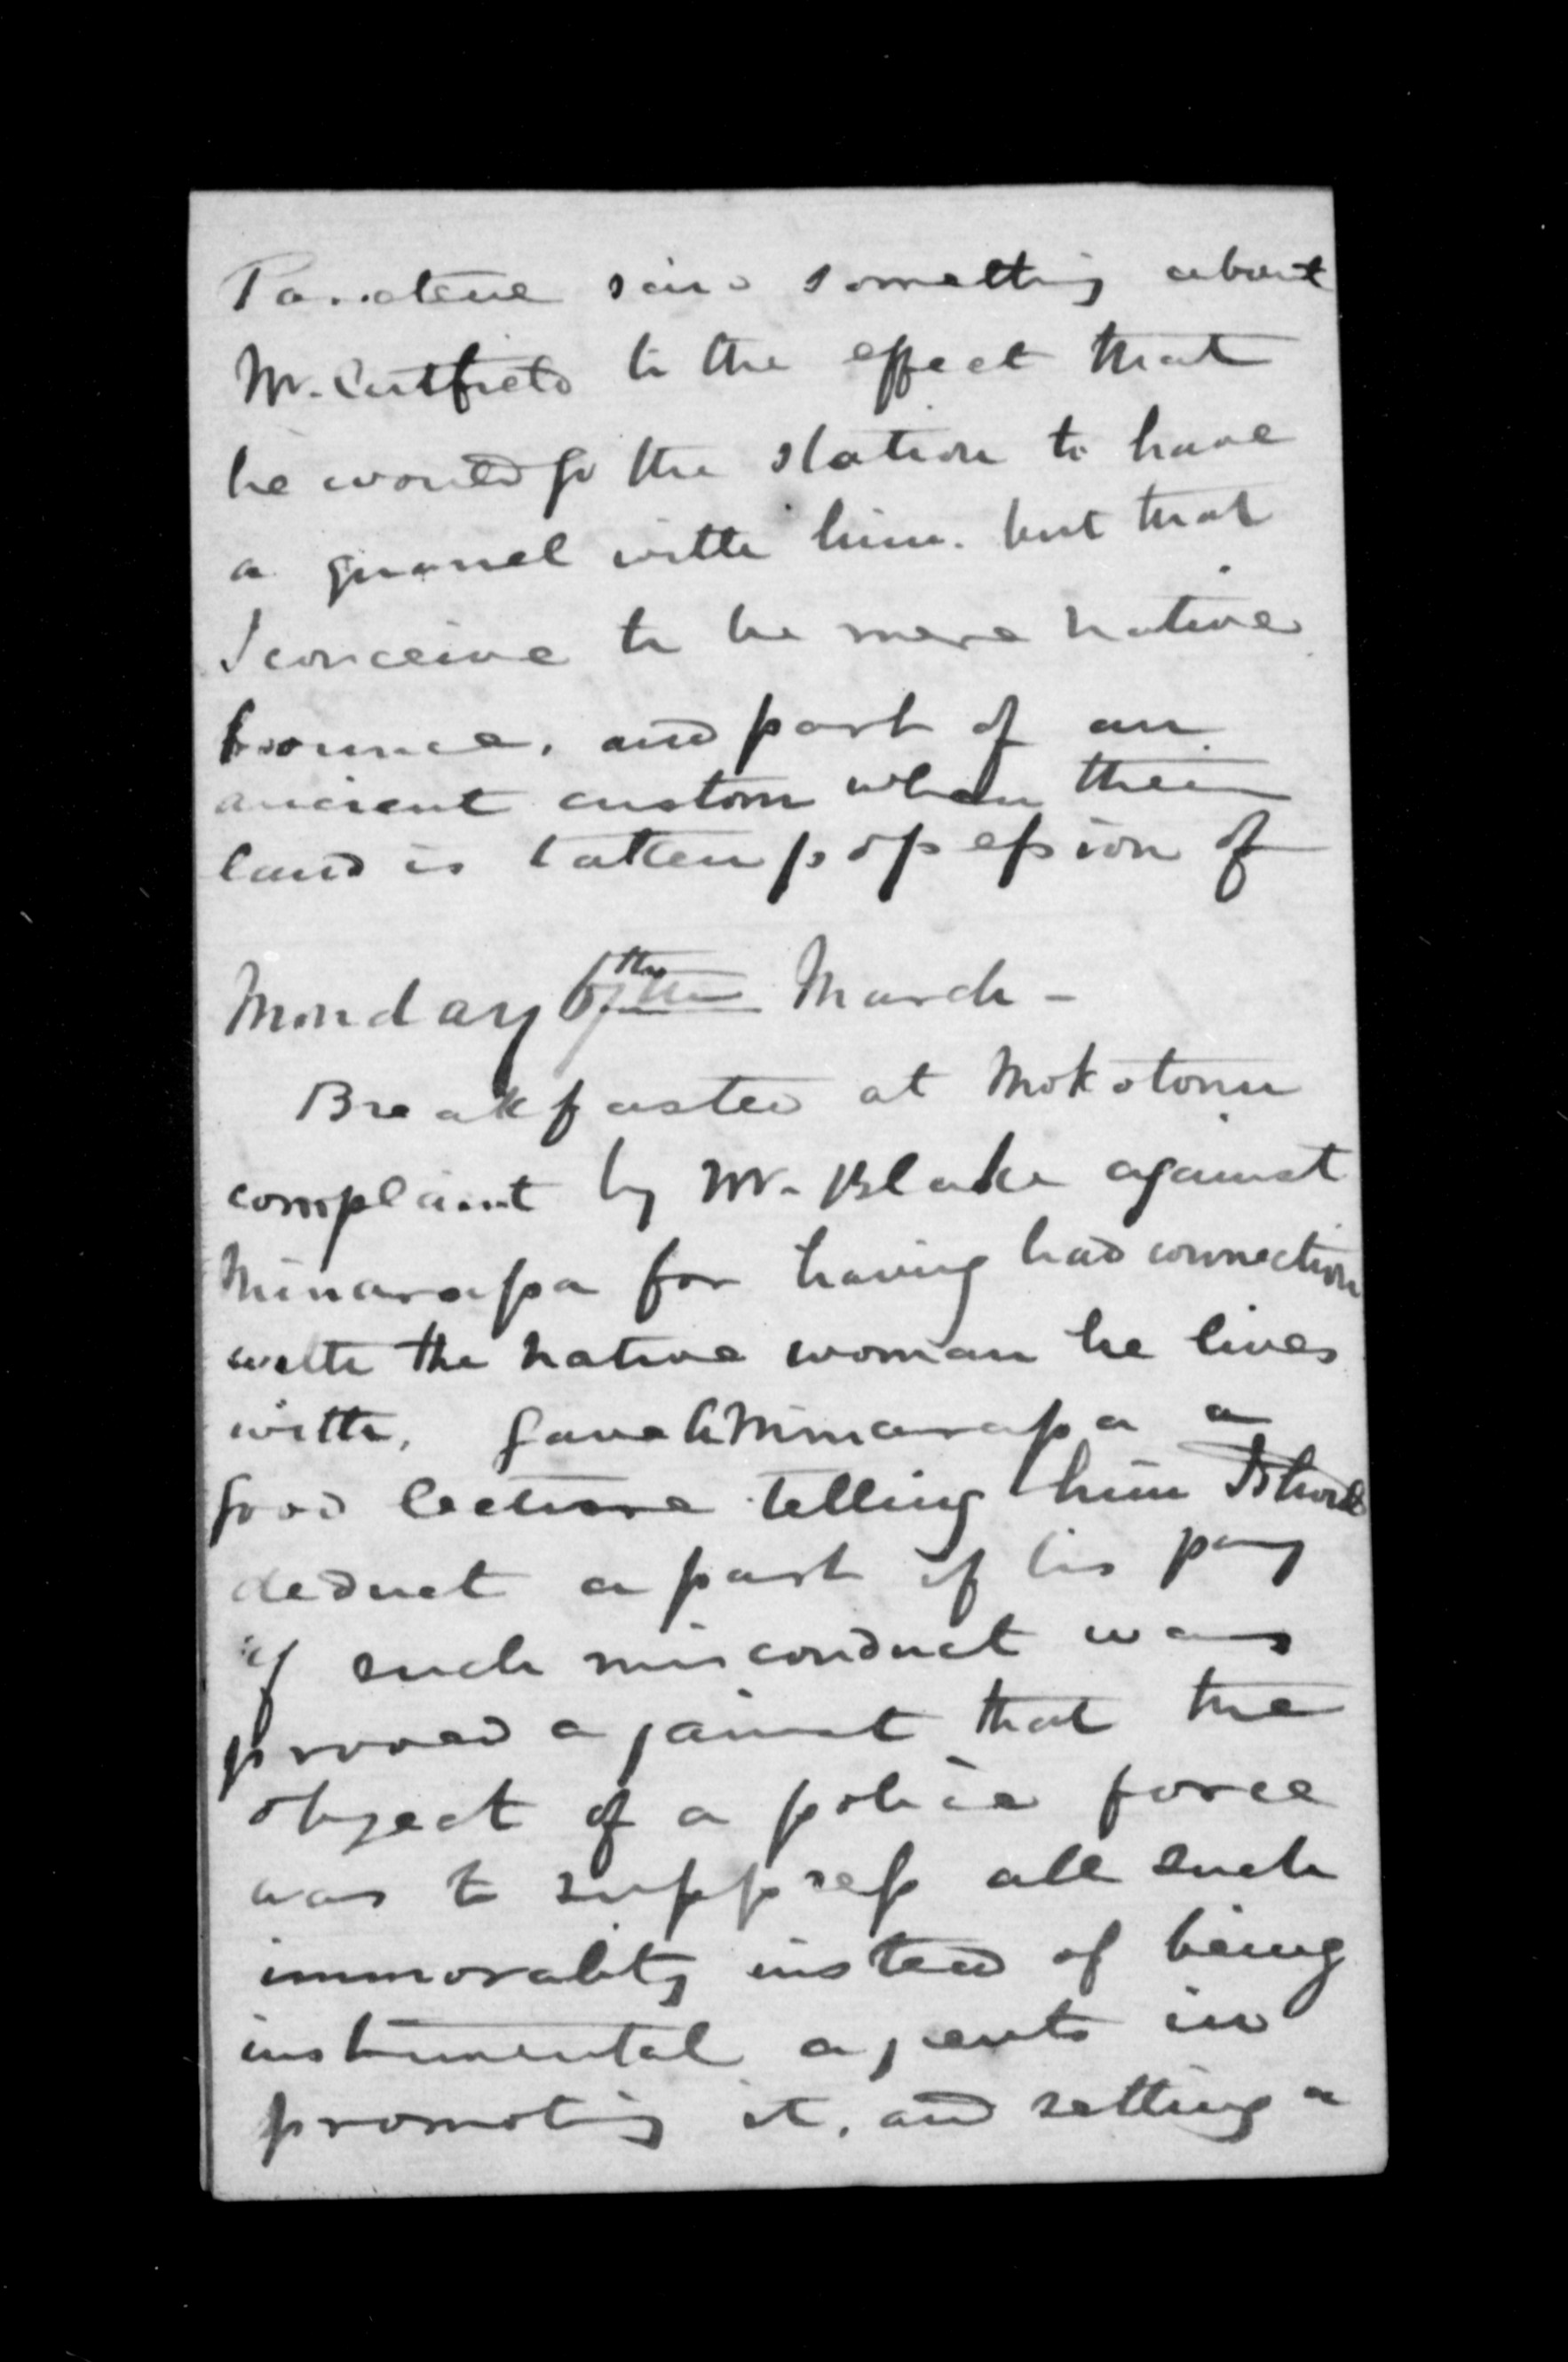 said something about
Mr. Cutfield to the effect that
he would go the station to have
a quarrel with him. but that
I conceive to be mere native
bounce, and part of an
ancient custom when their
land is taken possession of
Monday 6th March -
Breakfasted at Mokotonu
complaint by Mr. Blake against
Minarapa for having had connection
with the native woman he lives
with, gave Minarapa a
good lecture telling him I should
deduct a part of his pay
if such misconduct was
proved against that the
object of a police force
was to suppress all such
immorality instead of being
instrumental agents in
promoting it, and setting a